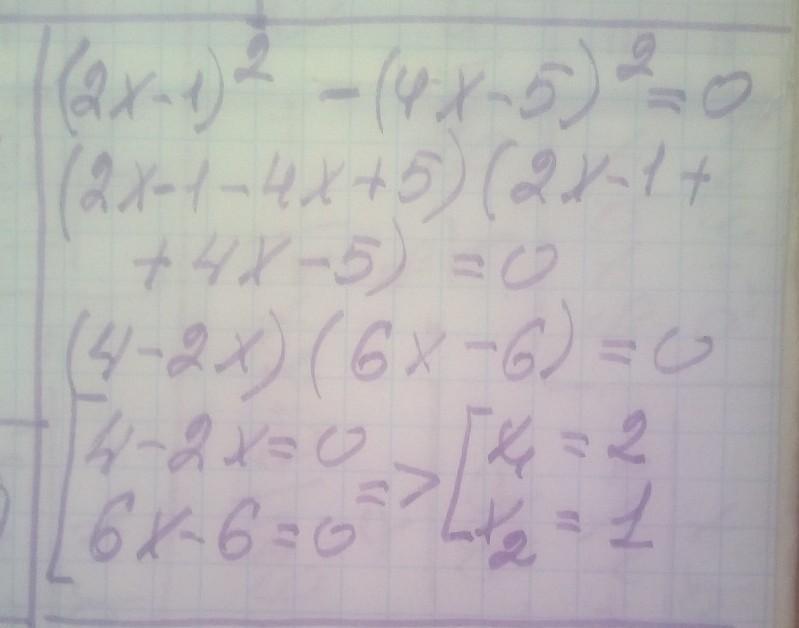 (2x-1)² - (4x-5)² = 0
(2x-1-4x+5)(2x-1+
+4x-5) = 0
(4-2x)(6x-6) = 0
[4-2x=0 => [x₁ = 2
6x-6=0 x₂ = 1